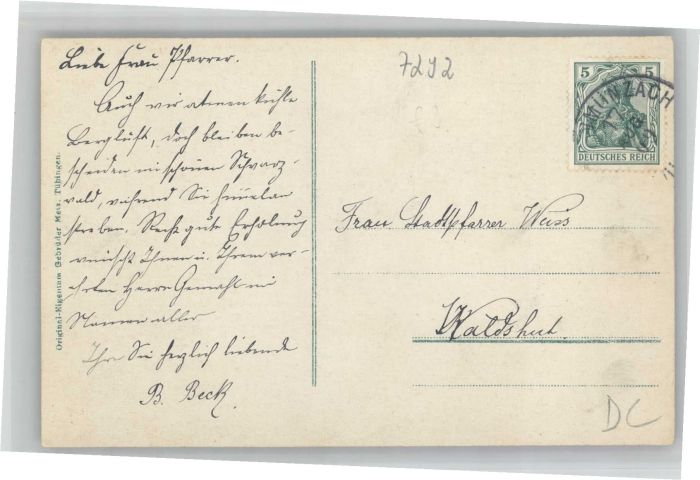 Liebe Frau Pfarrer.
Auch wir atmen kühle
Bergluft, doch bleiben be-
scheiden im schönen Schwarz-
wald, während Sie himmelan
streben. Recht gute Erholung
wünscht Ihnen u. Ihrem ver-
ehrten Herrn Gemahl im
Namen aller
Ihre Sie herzlich liebende
B. Beck
Original-Eigentum Gebrüder Metz, Tübingen.
7292
5 5
DEUTSCHES REICH
MÜNZACH
Frau Stadtpfarrer Weiss
Waldshut
DC